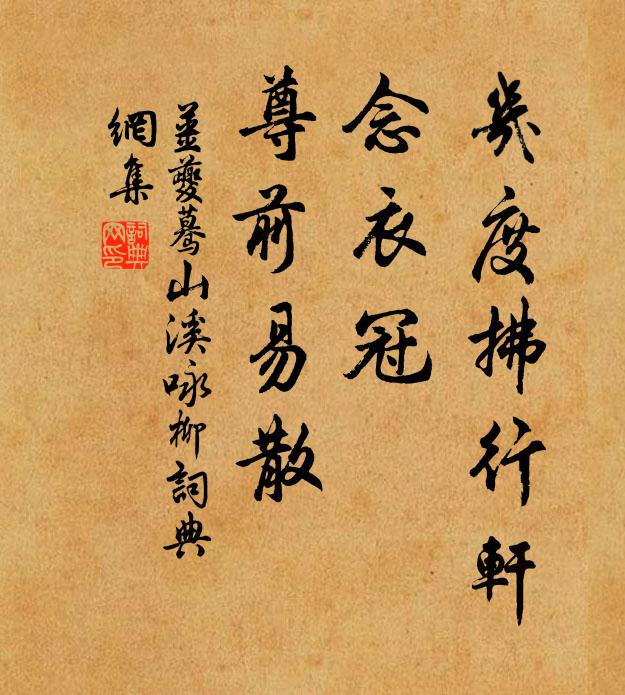 幾度拂行軒
念衣冠
尊前易散
姜夔驀山溪咏柳詞典
網集
詞典網印